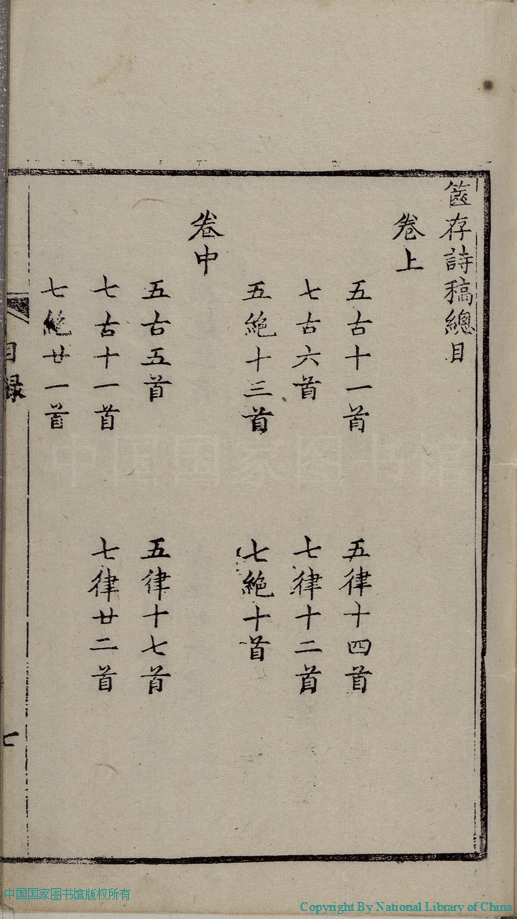 篋存詩稿總目
卷上
五古十一首　五律十四首
七古六首　七律十二首
五絶十三首　七絶十首
卷中
五古五首　五律十七首
七古十一首　七律廿二首
七絶廿一首
目録
七
中国国家图书馆
中国国家图书馆版权所有
Copyright By National Library of China